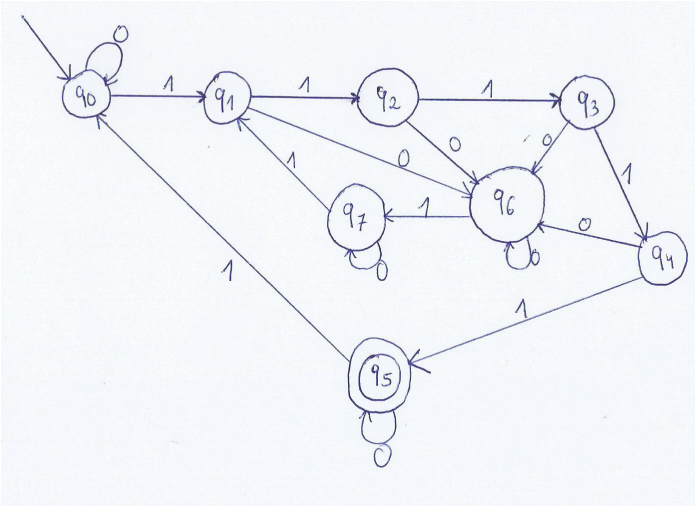 0
q0
1
q1
1
q2
1
q3
0
0
0
1
1
q7
1
q6
0
0
0
q4
1
1
q5
0